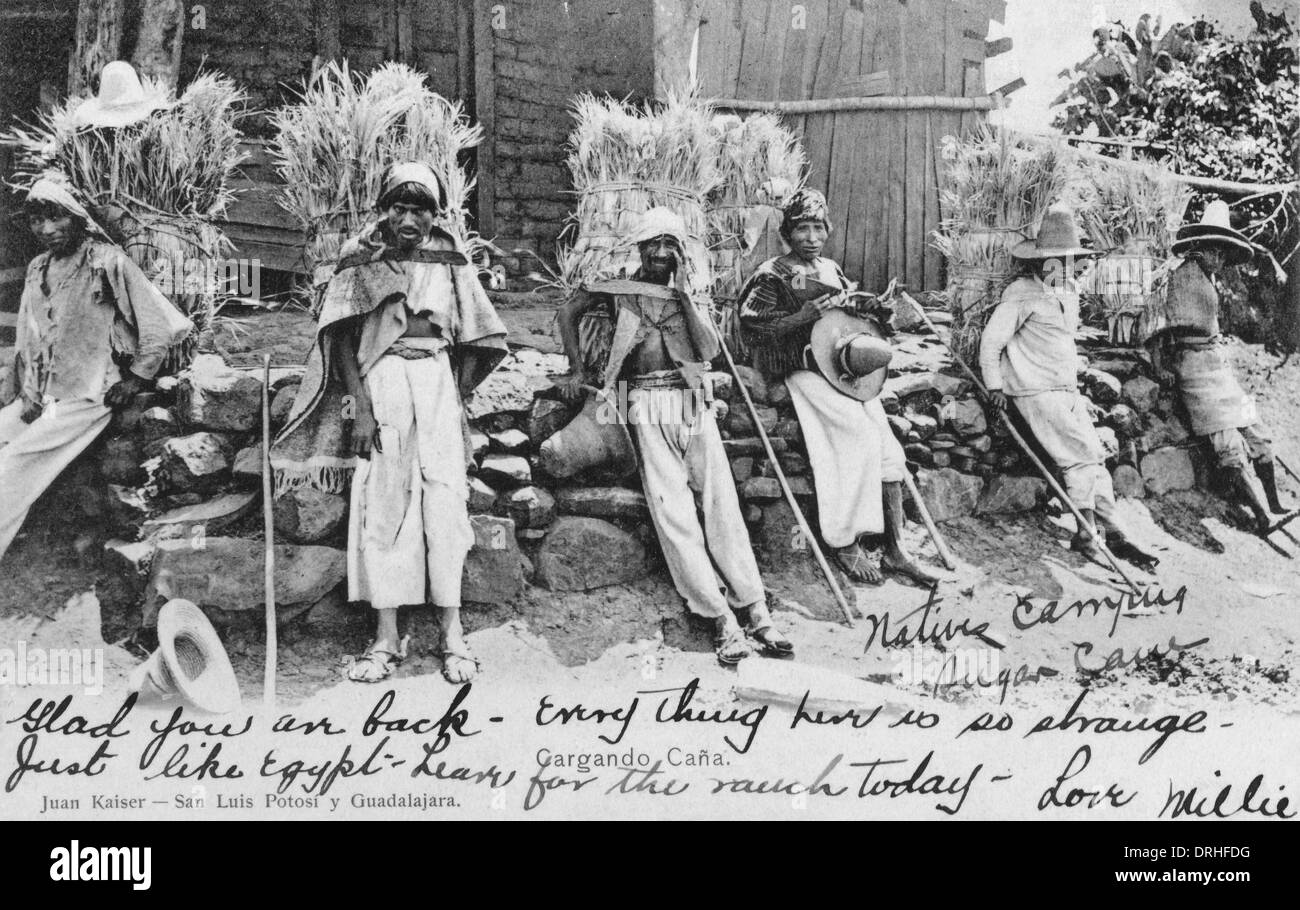 Natives Camping
Sugar Cane
Glad you are back - Every thing here is so strange -
Cargando Caña.
Just like Egypt - Leave for the ranch today - Love Millie
Juan Kaiser — San Luis Potosí y Guadalajara.
alamy
Image ID: DRHFDG
www.alamy.com